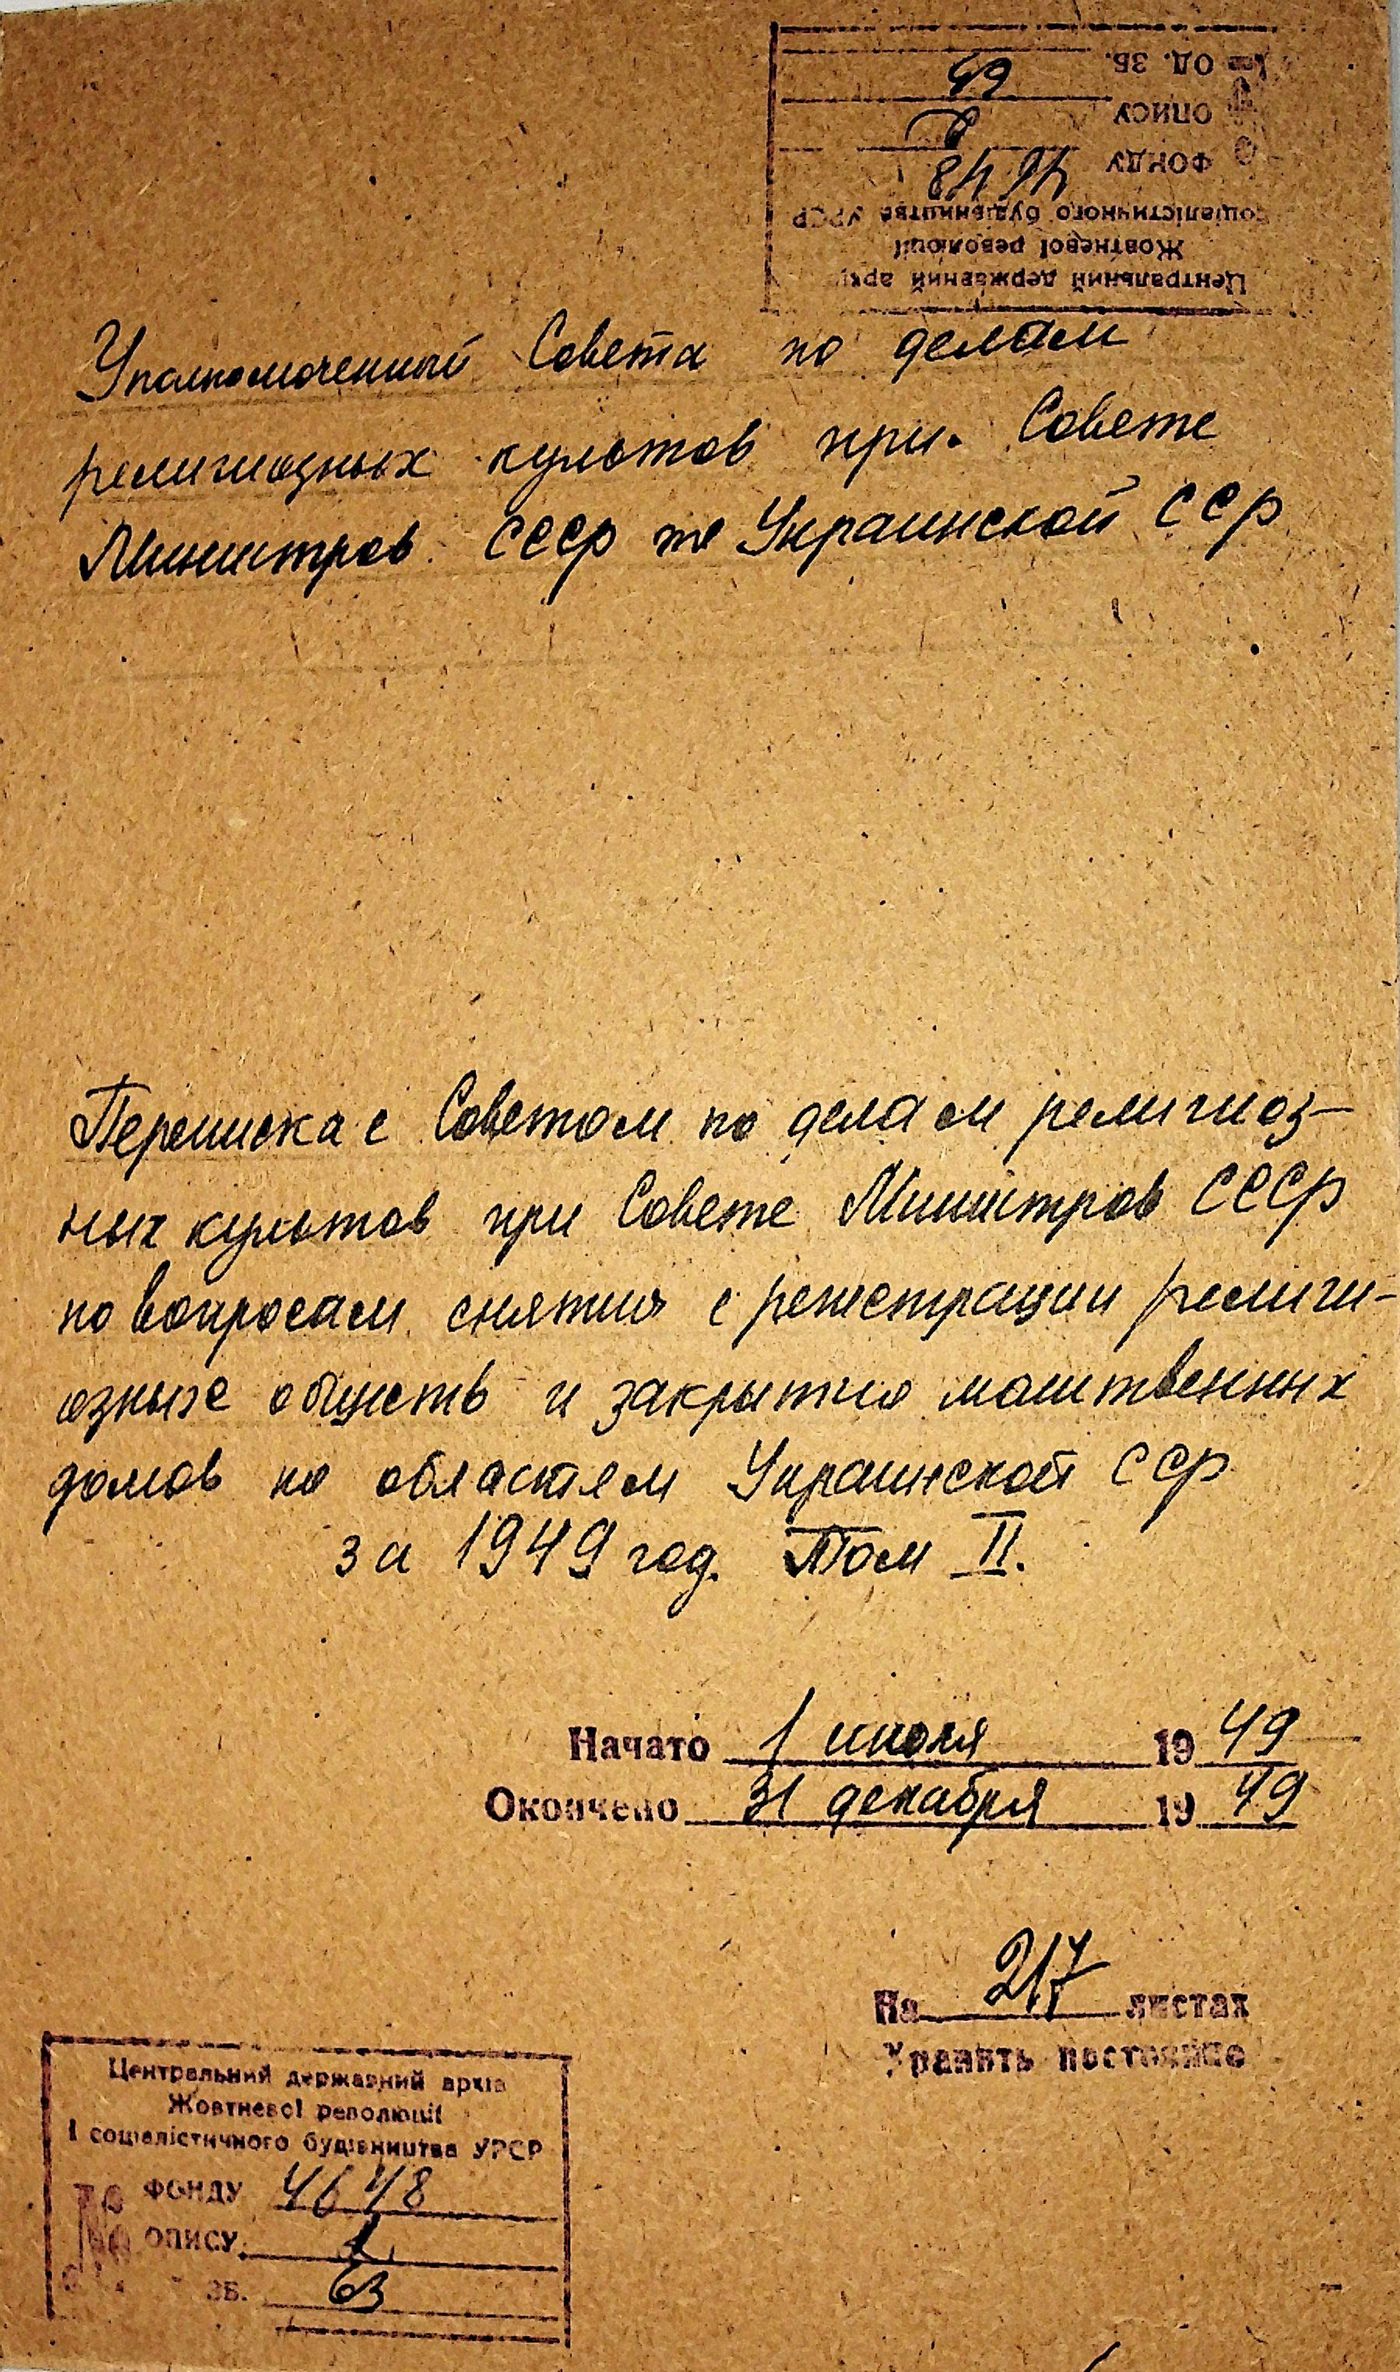 № ОД. ЗБ. 63
ОПИСУ
ФОНДУ 4648
соціалістичного будівництва УРСР
Жовтневої революції
Центральний державний архів
Уполномоченный Совета по делам
религиозных культов при Совете
Министров СССР по Украинской ССР
Переписка с Советом по делам религиоз-
ных культов при Совете Министров СССР
по вопросам снятия с регистрации религи-
озных обществ и закрытия молитвенных
домов по областям Украинской ССР
за 1949 год. Том II.
Начато 1 июля 1949
Окончено 31 декабря 1949
На 217 листах
Хранить постоянно
Центральний державний архів
Жовтневої революції
і соціалістичного будівництва УРСР
№ ФОНДУ 4648
№ ОПИСУ
ЗБ. 63